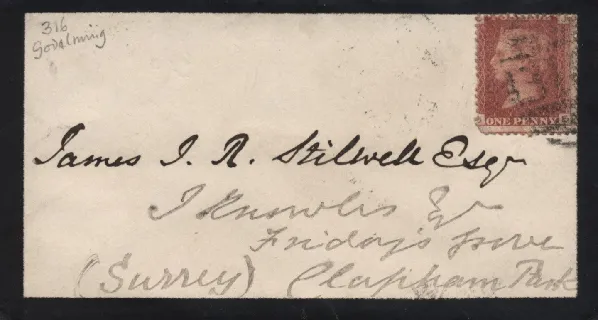 316
Godalming
ONE PENNY
James J. R. Stilwell Esqr
J Knowles Esq
Friday's grove
(Surrey) Clapham Park